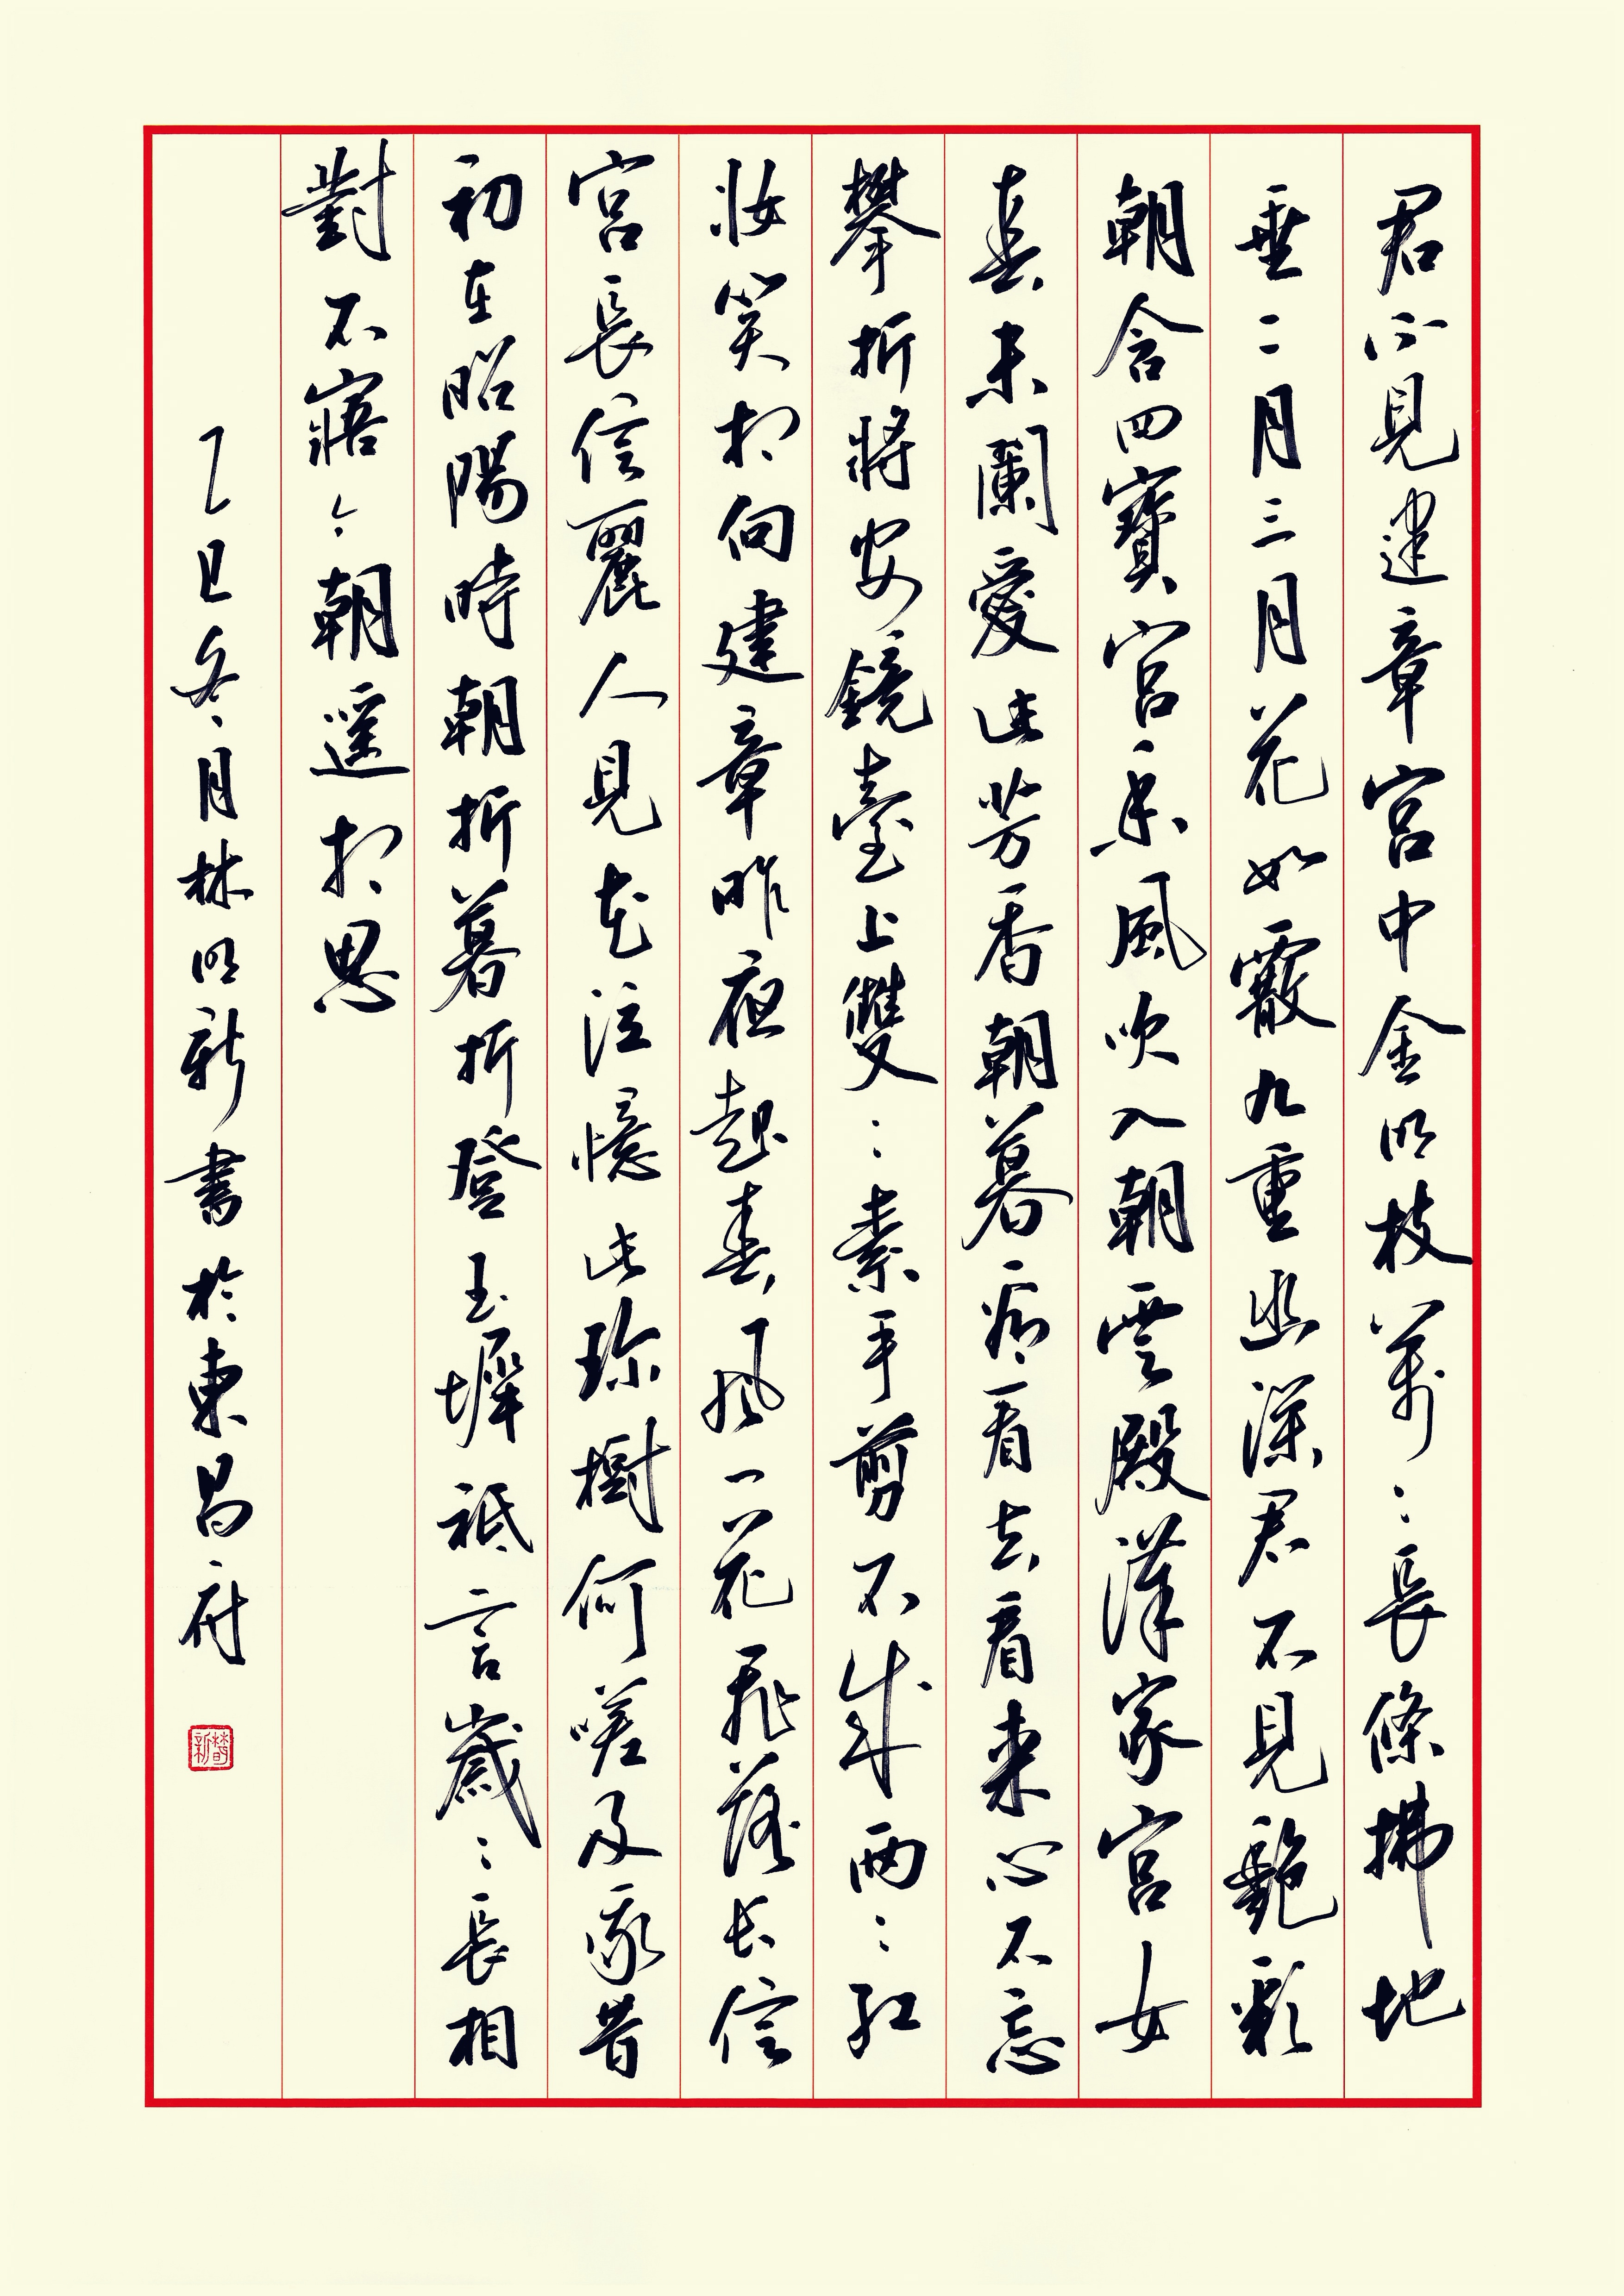 君不見建章宮中金明枝萬々長條拂地
垂二月三月花如霰九重幽深君不見艷彩
朝含四寶宮香風吹入朝雲殿漢家宮女
春未闌愛此芳香朝暮看看去看來心不忘
攀折將安鏡臺上雙々素手剪不成兩々紅
妝笑相向建章昨夜起春風一花飛落長信
宮長信麗人見花泣憶此珍樹何嗟及我昔
初在昭陽時朝折暮折登玉墀祗言歲々長相
對不寤今朝遙相思
乙巳冬月林明新書於東昌府